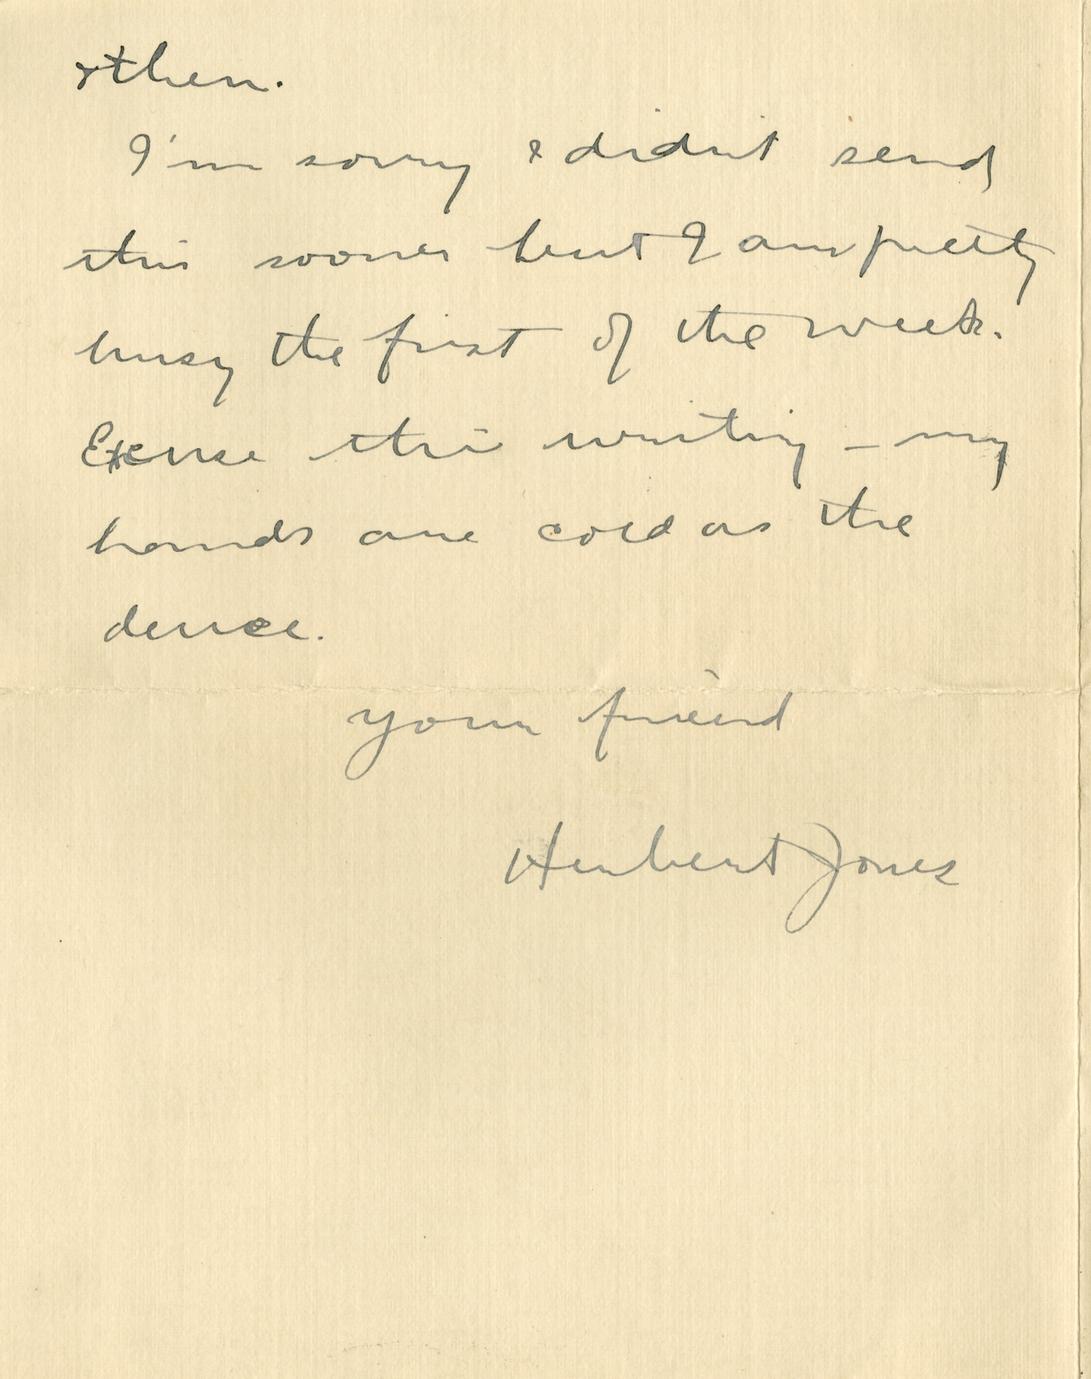 then.
I'm sorry I didn't send
this sooner but I am pretty
busy the first of the week.
Excuse this writing – my
hands are cold as the
deuce.
your friend
Herbert Jones